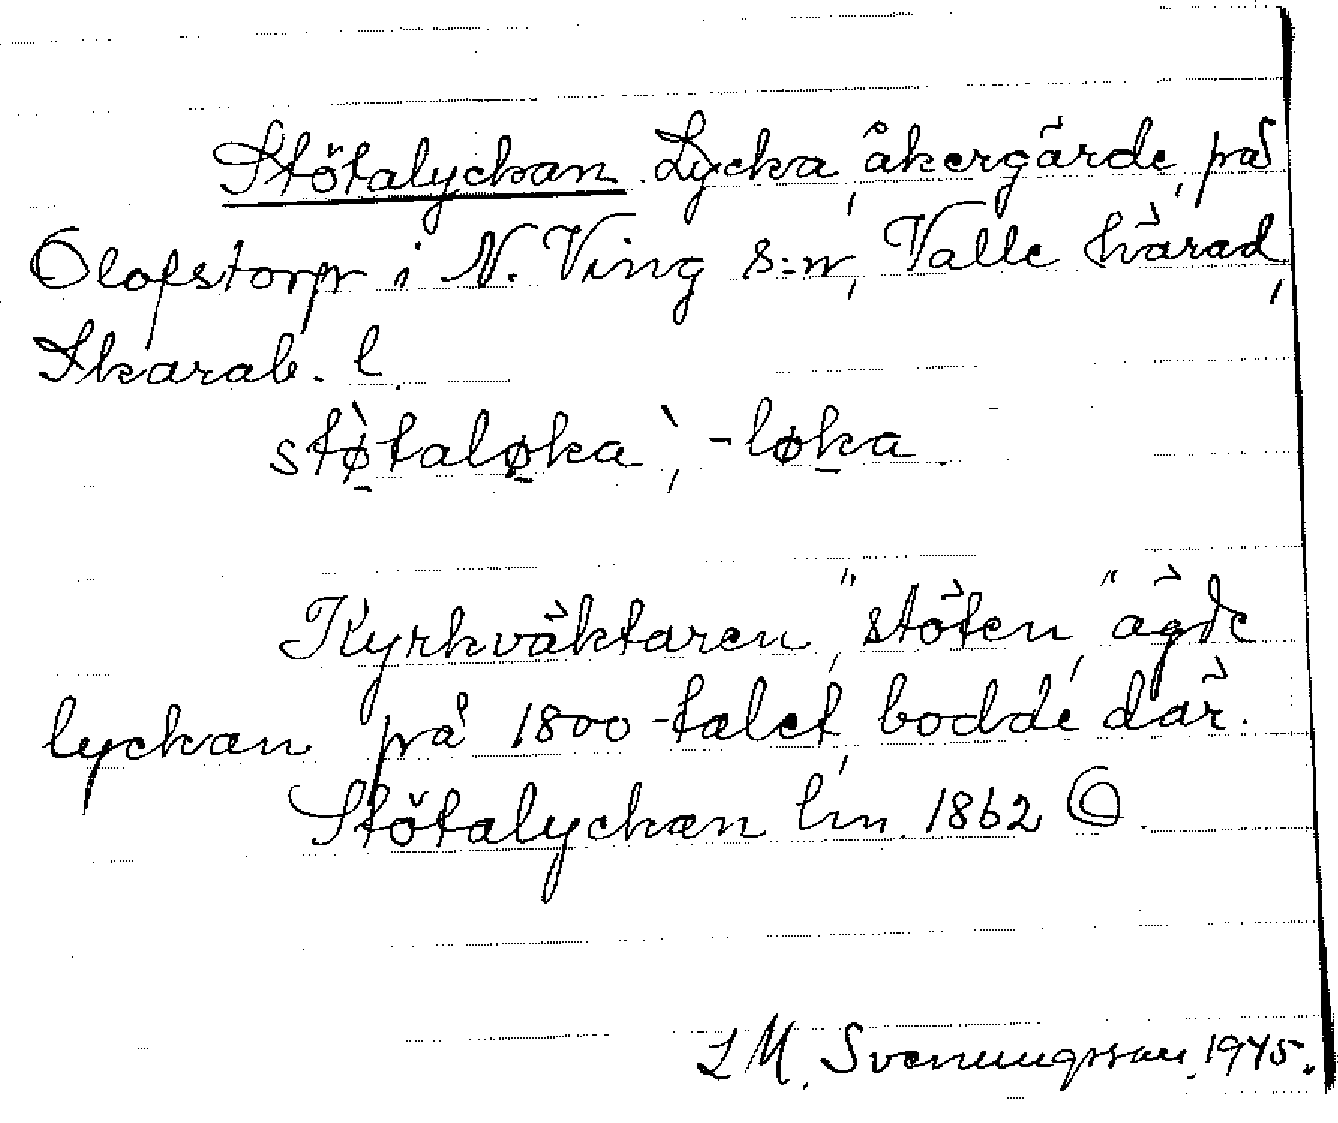 Stötalyckan Lycka, åkergärde, på
Olofstorp i N. Ving s:n, Valle härad,
Skarab. l.
stø̠̀taløka, -lø̠ka
Kyrkväktaren, "stöten," ägde
lyckan på 1800-talet, bodde där.
Stötalyckan lm 1862
L M. Svenungsson. 1945.